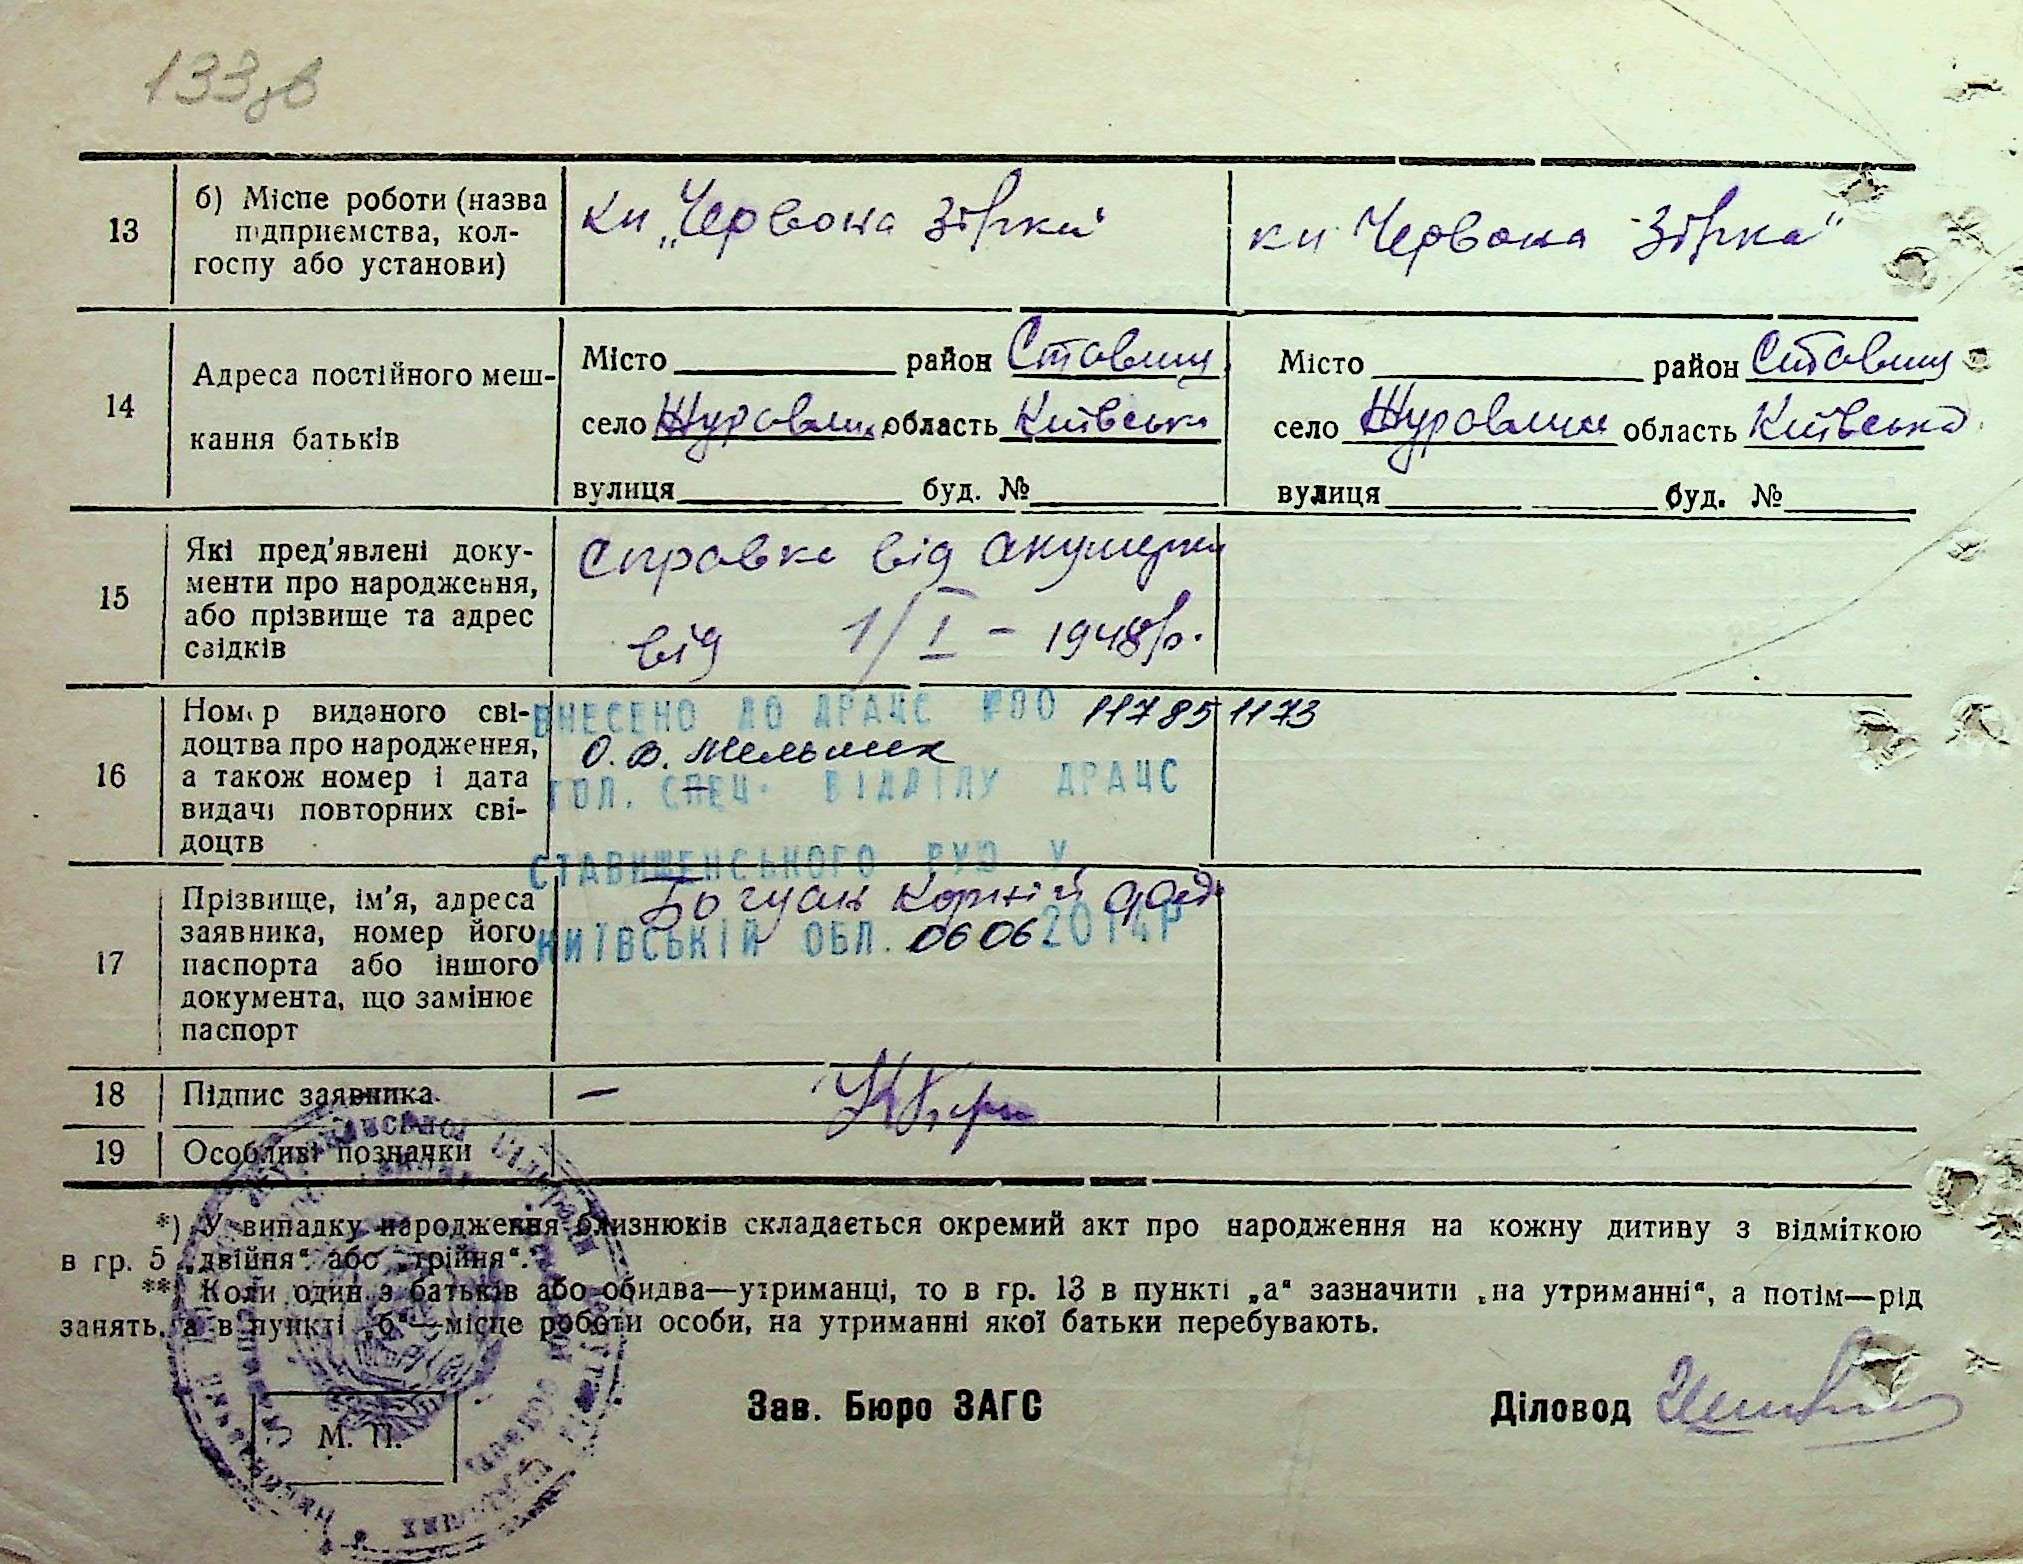 133зв
13
б) Місце роботи (назва
підприємства, кол-
госпу або установи)
кп „Червона зірка"
кп Червона зірка"
14
Адреса постійного меш-
кання батьків
Місто район Ставищ
село Журавлиха область Київська
вулиця буд. №
Місто район Ставищ
село Журавлиха область Київська
вулиця буд. №
15
Які пред'явлені доку-
менти про народження,
або прізвище та адрес
свідків
Справка від акушерки
від 1/I – 1948р.
16
Номер виданого сві-
доцтва про народження,
а також номер і дата
видачі повторних сві-
доцтв
ВНЕСЕНО ДО ДРАЦС №00 117851173
О.В. Мельник
ГОЛ. СПЕЦ. ВІДДІЛУ ДРАЦС
СТАВИЩЕНСЬКОГО РУЮ У
КИЇВСЬКІЙ ОБЛ. 0606 2014Р
17
Прізвище, ім'я, адреса
заявника, номер його
паспорта або іншого
документа, що замінює
паспорт
Богуслав Корній
18
Підпис заявника
–
19
Особливі позначки
*) У випадку народження близнюків складається окремий акт про народження на кожну дитину з відміткою
в гр. 5 „двійня“ або „трійня“.
**) Коли один з батьків або обидва—утриманці, то в гр. 13 в пункті „а“ зазначити „на утриманні“, а потім—рід
занять, а в пункті „б“—місце роботи особи, на утриманні якої батьки перебувають.
М. П.
Зав. Бюро ЗАГС
Діловод